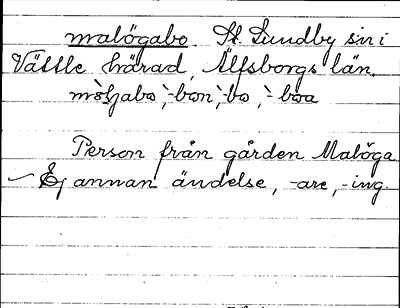 malögabo St. Lundby sn i
Vättle härad, Älfsborgs län.
-bon, -bo, -boa
Person från gården Malöga
Ej annan ändelse, -are, -ing.